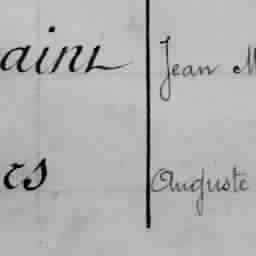 aint Jean M
rs Auguste